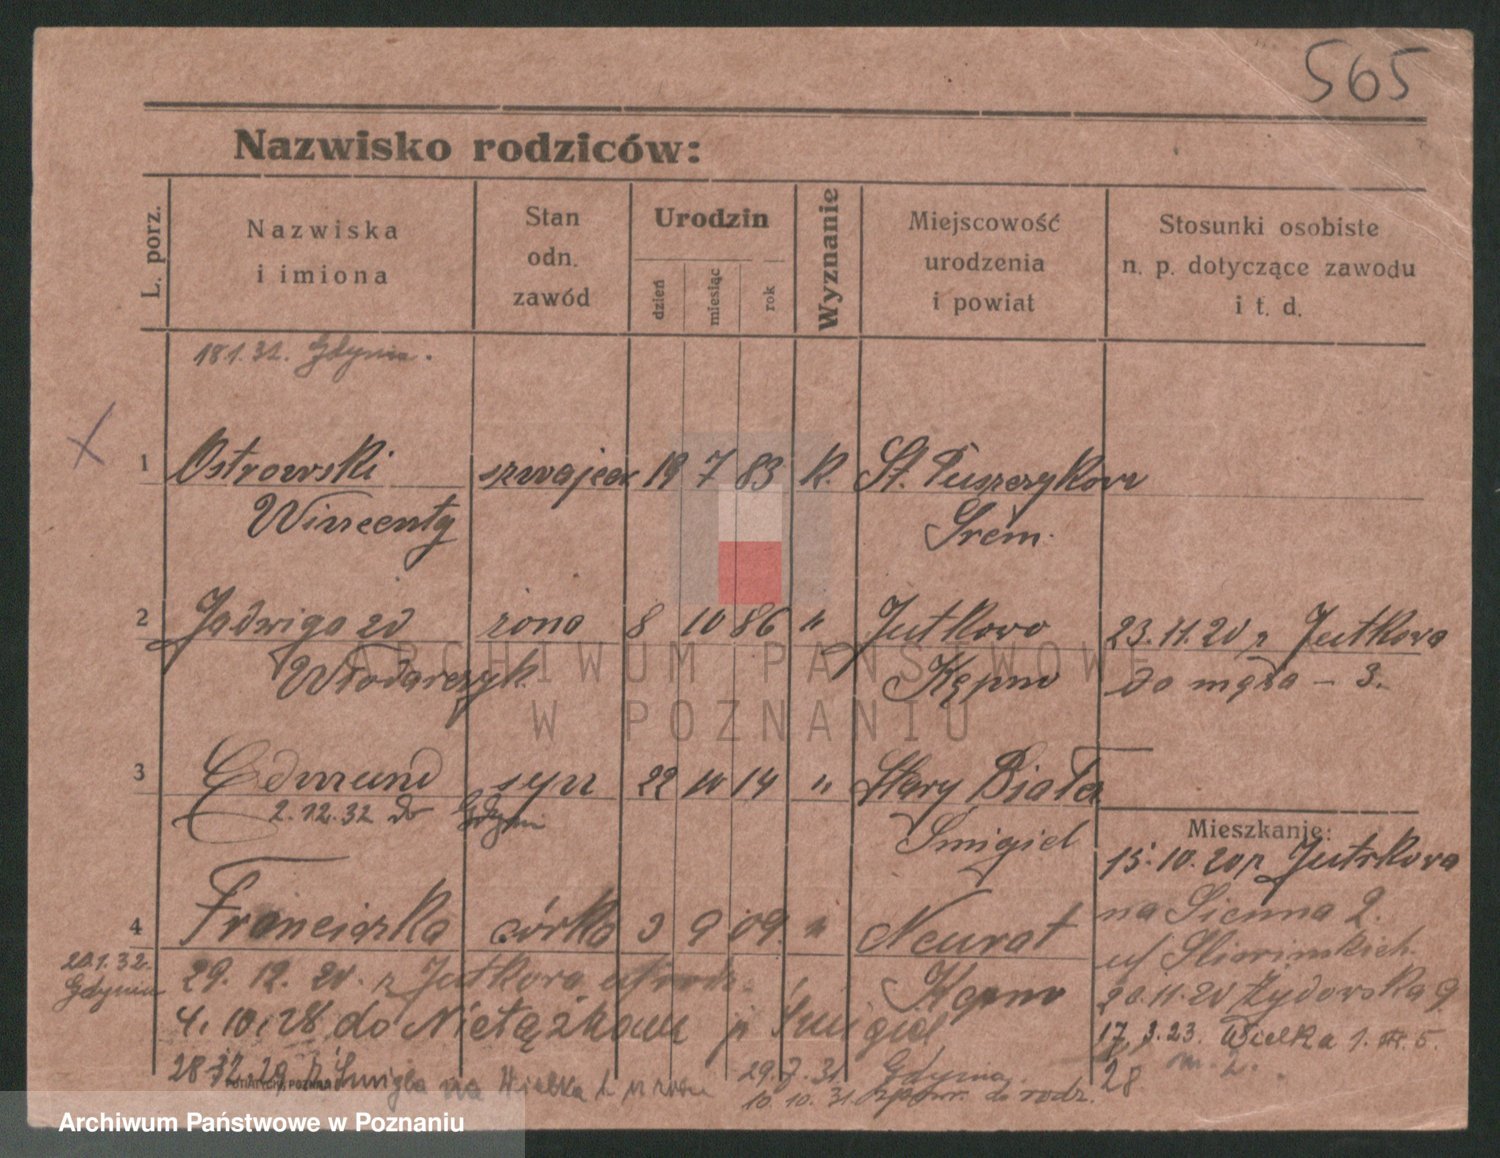 565
Nazwisko rodziców:
L. porz.
Nazwiska
i imiona
Stan
odn.
zawód
Urodzin
dzień
miesiąc
rok
Wyznanie
Miejscowość
urodzenia
i powiat
Stosunki osobiste
n. p. dotyczące zawodu
i t. d.
18 1. 32. Gdynia.
1 Ostrowski szwajcar 19 7 83 k. St. Puszczykowo
Wincenty Śrem.
2 Jadwiga zd żona 8 10 86 " Jutkowo 23.11.20 z Jutkowa
Włodarczyk Kępno do męża - 3.
3 Edmund syn 22 10 14 " Stary Białcz
2.12.32 do Gdyni Śmigiel
Mieszkanie:
15.10.20 z Jutrkowa
4 Franciszka córka 3 9 09. " Neurat
Kępno
na Sienna 2.
u/
20.11.20 Żydowska 9
17.3.23. Wielka 1. m. 5.
28 m. 2.
20.1.32.
Gdynia
29. 12. 20. z Jutkowa
4. 10. 28 do Nietążkowa p. Śmigiel
29 z Śmigla na Wielka
29.7.31. Gdynia
10. 10. 31. do rodz.
ARCHIWUM PAŃSTWOWE
W POZNANIU
Archiwum Państwowe w Poznaniu